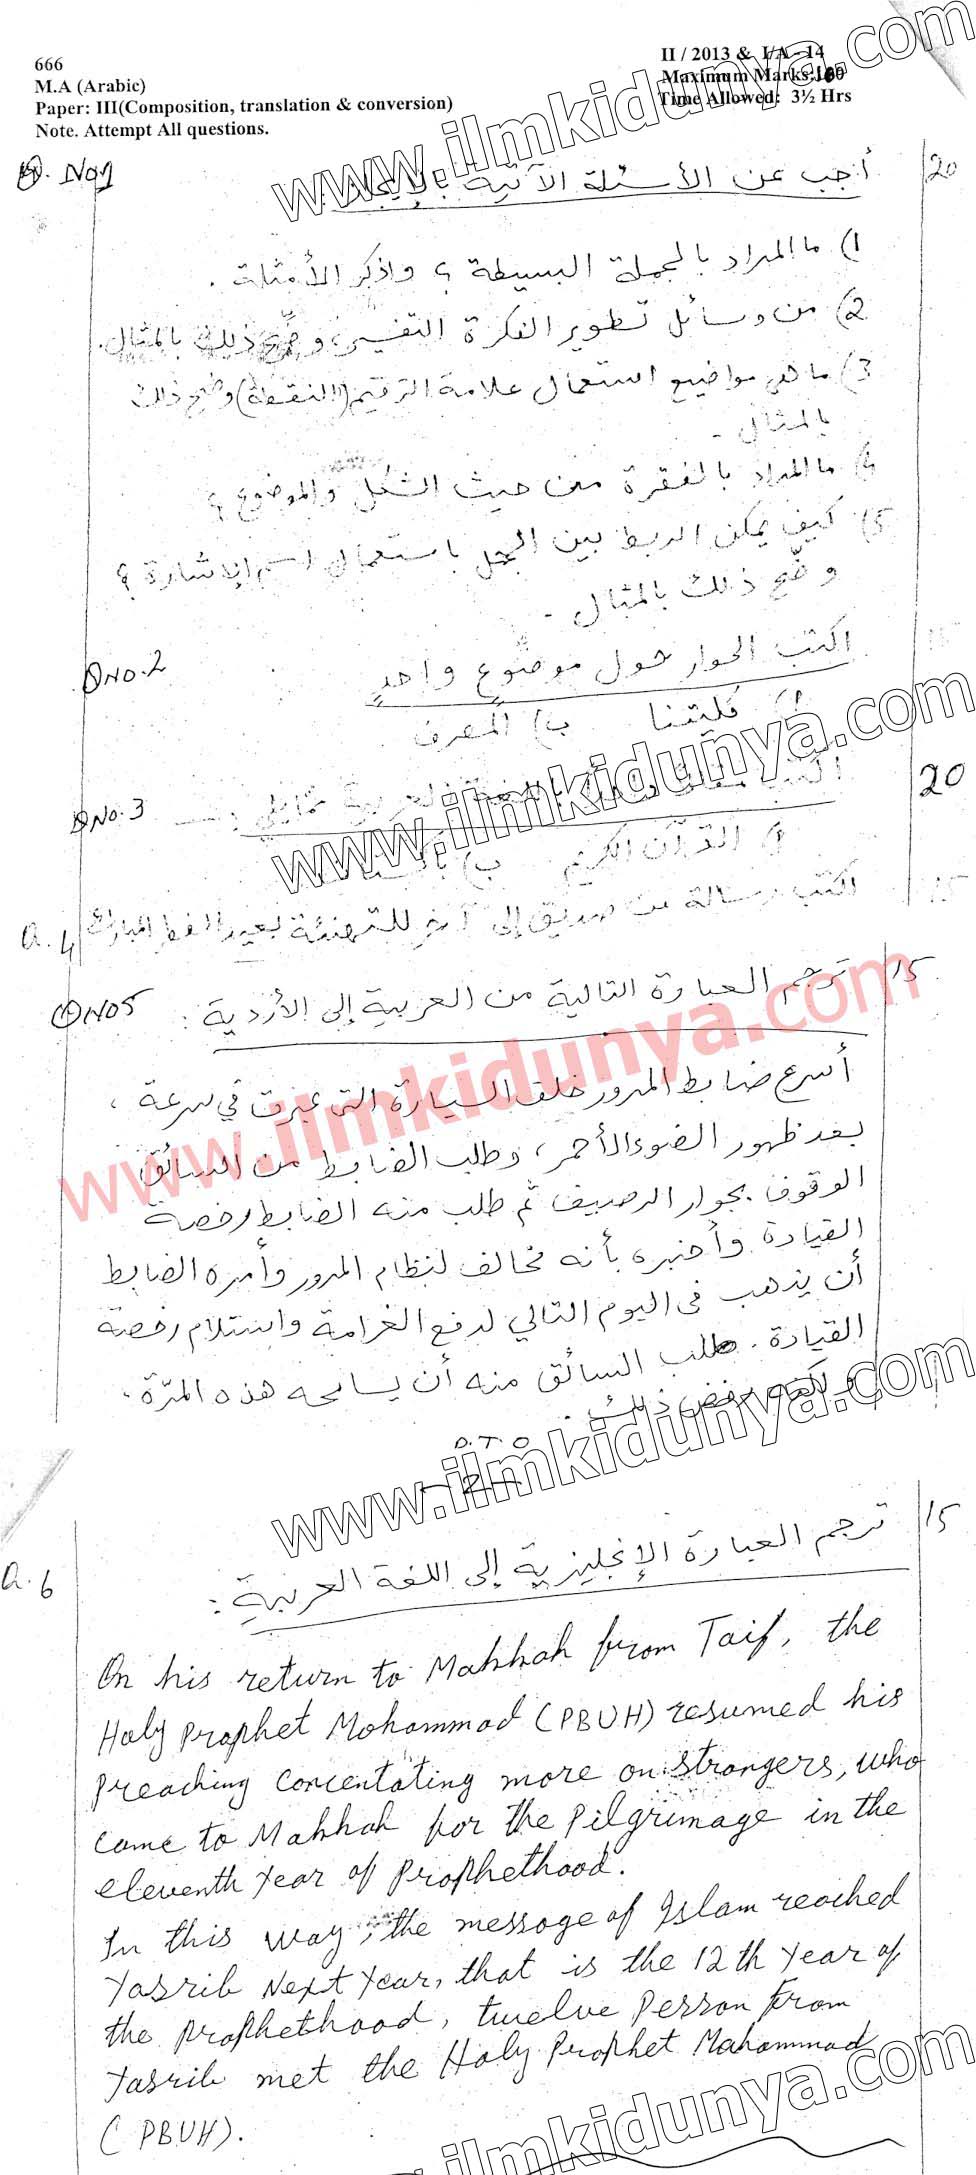 666
M.A (Arabic)
Paper: III(Composition, translation & conversion)
Note. Attempt All questions.
II / 2013 & I/A - 14
Maximum Marks:100
Time Allowed: 3½ Hrs
Q. No1
أجب عن الأسئلة الآتية بالإيجاز
20
1) ما المراد بالجملة البسيطة ؟ واذكر الأمثلة .
2) من وسائل تطوير الفكرة التفسير، وضّح ذلك بالمثال.
3) ما هي مواضيع استعمال علامة الترقيم (النقطة) وضح ذلك
بالمثال -
4) ما المراد بالفقرة من حيث الشكل والموضوع ؟
5) كيف يمكن الربط بين الجمل باستعمال اسم الإشارة ؟
وضّح ذلك بالمثال -
Q No.2
اكتب الحوار حول موضوع واحدٍ
15
كليتنا ب) المصرف
Q No.3
20
القرآن الكريم ب)
Q. 4
اكتب رسالة من صديق إلى آخر للتهنئة بعيد الفطر المبارك
15
Q No5
ترجم العبارة التالية من العربية إلى الأردية :
15
أسرع ضابط المرور خلف السيارة التي عبرت في سرعة ،
بعد ظهور الضوء الأحمر ، وطلب الضابط من السائق
الوقوف بجوار الرصيف ثم طلب منه الضابط رخصة
القيادة وأخبره بأنه مخالف لنظام المرور وأمره الضابط
أن يذهب في اليوم التالي لدفع الغرامة واستلام رخصة
القيادة . طلب السائق منه أن يسامحه هذه المرّة .
ولكنه رفض ذلك .
P.T.O
-2-
Q. 6
ترجم العبارة الإنجليزية إلى اللغة العربية :
15
On his return to Makkah from Taif, the
Holy Prophet Mohammad (PBUH) resumed his
Preaching concentating more on strangers, who
came to Makkah for the Pilgrimage in the
eleventh year of Prophethood.
In this way, the message of Islam reached
Yasrib Next Year, that is the 12th Year of
the Prophethood, twelve Person From
Yasrib met the Holy Prophet Mahammad
(PBUH).
www.ilmkidunya.com
www.ilmkidunya.com
www.ilmkidunya.com
www.ilmkidunya.com
www.ilmkidunya.com